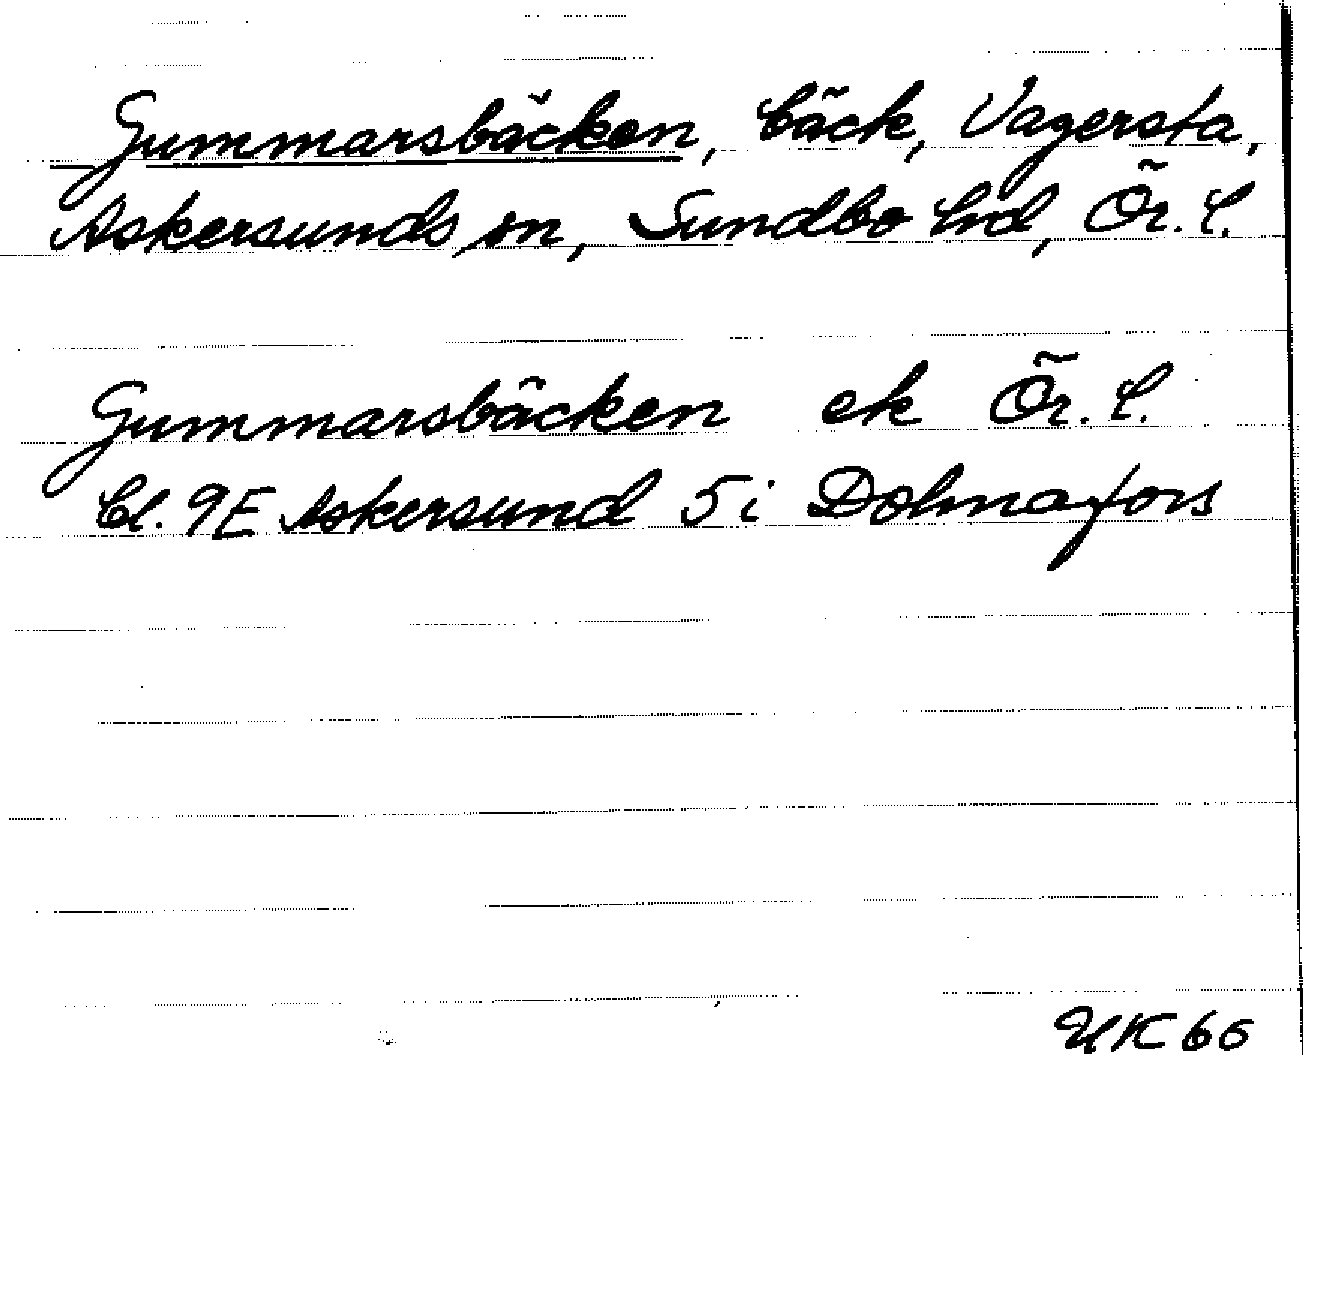 Gummarsbäcken, bäck, Vagersta,
Askersunds sn, Sundbo hd, Ör. l.
Gummarsbäcken ek Ör. l.
bl. 9E Askersund 5i Dohnafors
UK 66